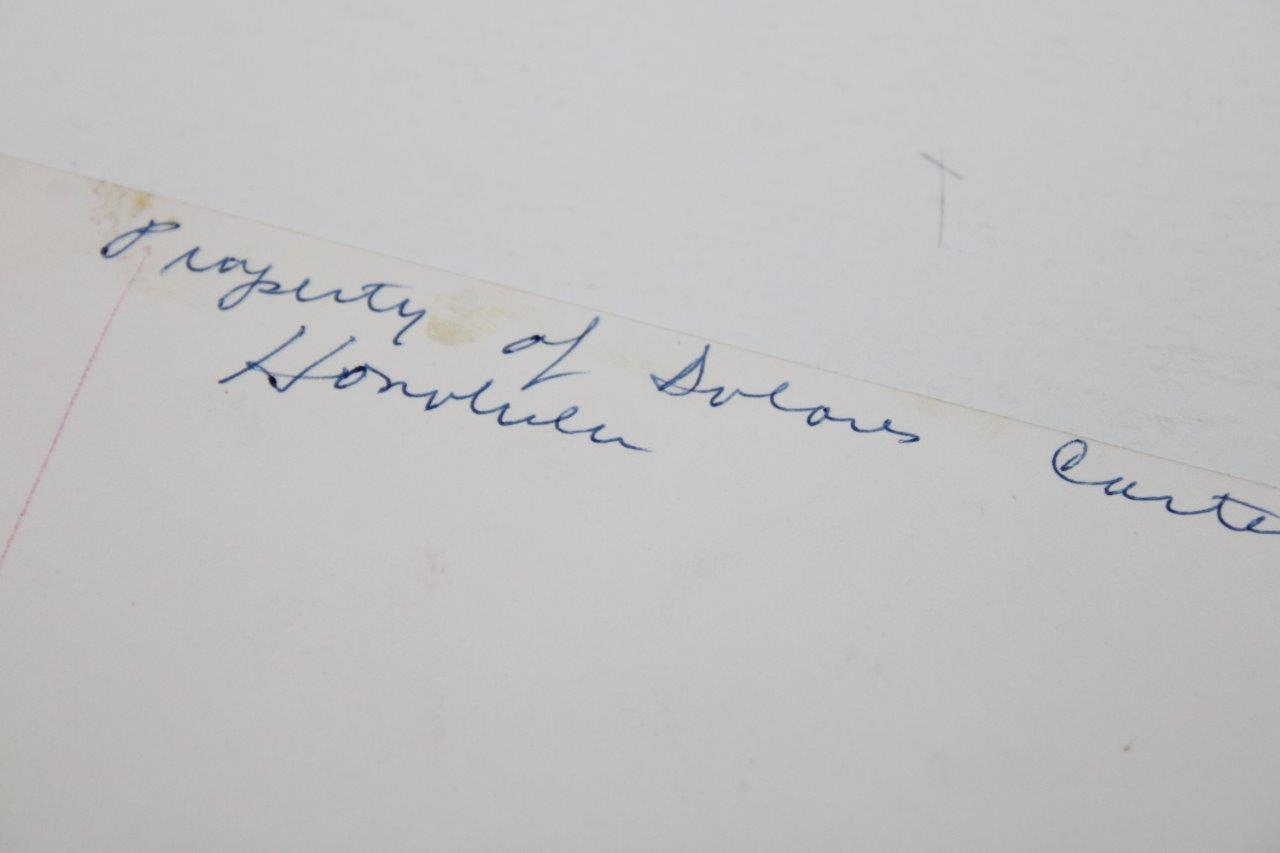 Property of Dolores Carte
Honolulu